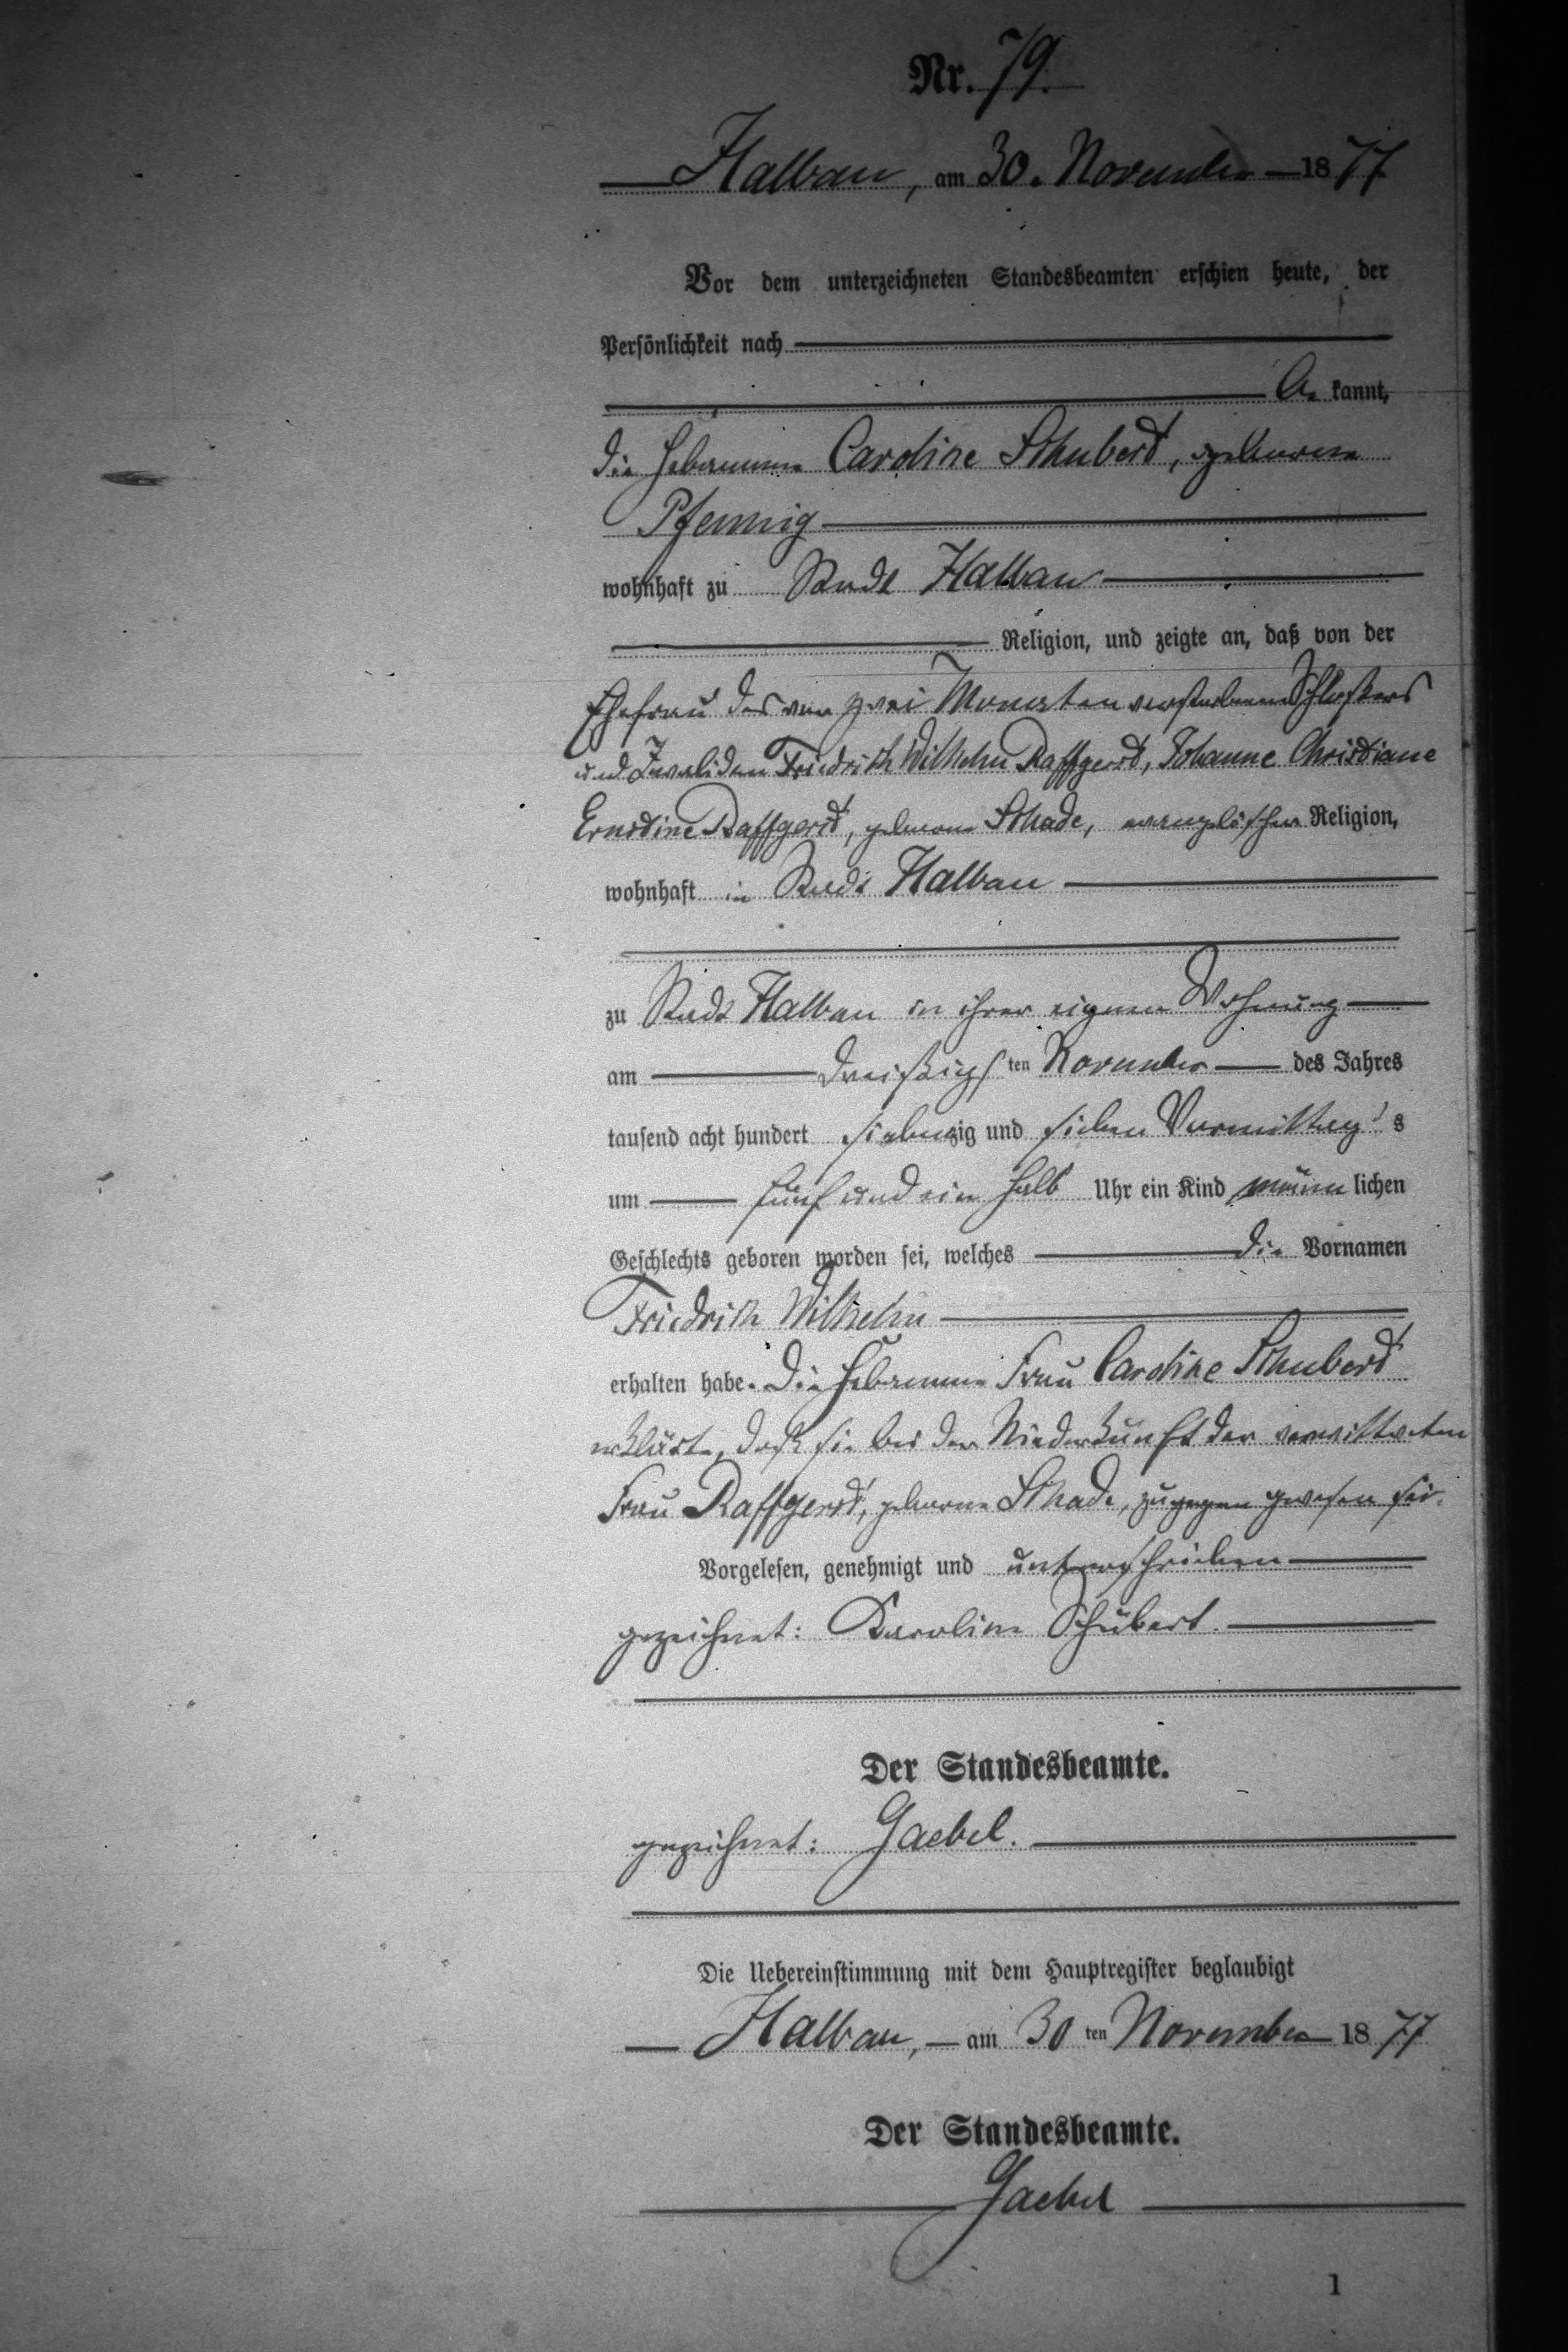 Nr. 79.
Halbau, am 30. November 1877
Vor dem unterzeichneten Standesbeamten erschien heute, der
Persönlichkeit nach
be kannt,
die Hebamme Caroline Schubert, geborene
Pfennig
wohnhaft zu Stadt Halbau
Religion, und zeigte an, daß von der
Ehefrau des vor zwei Monaten verstorbenen Schlossers
und Invaliden Friedrich Wilhelm Raffgerst, Johanne Christiane
Ernstine Raffgerst, geborne Schade, evangelischer Religion,
wohnhaft in Stadt Halbau
zu Stadt Halbau in ihrer eignen Wohnung
am dreißigsten November des Jahres
tausend acht hundert siebenzig und sieben Vormittags
um fünf und ein halb Uhr ein Kind männlichen
Geschlechts geboren worden sei, welches die Vornamen
Friedrich Wilhelm
erhalten habe. Die Hebamme Frau Caroline Schubert
erklärte, daß sie bei der Niederkunft der verwittweten
Frau Raffgerst, geborne Schade, zugegen gewesen sei.
Vorgelesen, genehmigt und unterschrieben
gezeichnet: Karoline Schubert.
Der Standesbeamte.
gezeichnet: Gaebel.
Die Uebereinstimmung mit dem Hauptregister beglaubigt
Halbau, am 30ten November 1877
Der Standesbeamte.
Gaebel
1